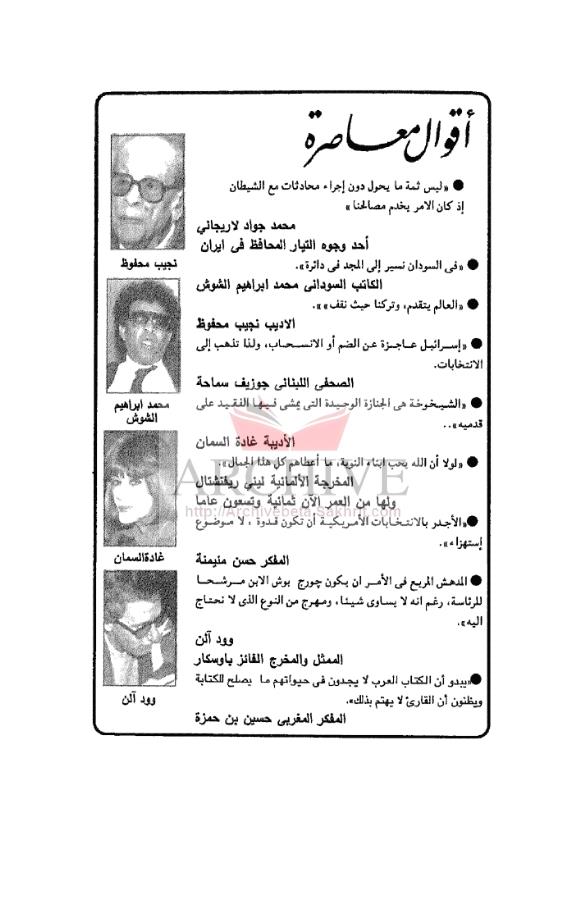 أقوال معاصرة
● «ليس ثمة ما يحول دون إجراء محادثات مع الشيطان
إذ كان الامر يخدم مصالحنا»
محمد جواد لاريجاني
أحد وجوه التيار المحافظ فى ايران
● «فى السودان نسير إلى المجد فى دائرة».
الكاتب السودانى محمد ابراهيم الشوش
● «العالم يتقدم، وتركنا حيث نقف»».
الاديب نجيب محفوظ
● «إسرائيل عاجزة عن الضم أو الانسحاب، ولذا تذهب إلى
الانتخابات.
الصحفى اللبنانى جوزيف سماحة
● «الشيخوخة هى الجنازة الوحيدة التى يمشى فيها الفقيد على
قدميه»..
الأديبة غادة السمان
● «لولا أن الله يحب ابناء النوبة، ما أعطاهم كل هذا الجمال».
المخرجة الألمانية لينى ريفنشتال
ولها من العمر الآن ثمانية وتسعون عاما
●«الأجدر بالانتخابات الأمريكية أن تكون قدوة ، لا موضوع
إستهزاء».
المفكر حسن منيمنة
● المدهش المريع فى الأمر ان يكون چورج بوش الابن مرشحا
للرئاسة، رغم انه لا يساوى شيئا، ومهرج من النوع الذى لا نحتاج
اليه».
وود آلن
الممثل والمخرج الفائز باوسكار
●«يبدو أن الكتاب العرب لا يجدون فى حيواتهم ما يصلح للكتابة
ويظنون أن القارئ لا يهتم بذلك».
المفكر المغربى حسين بن حمزة
نجيب محفوظ
محمد ابراهيم
الشوش
غادةالسمان
وود آلن
ARCHIVE
http://Archivebeta.Sakhrit.com